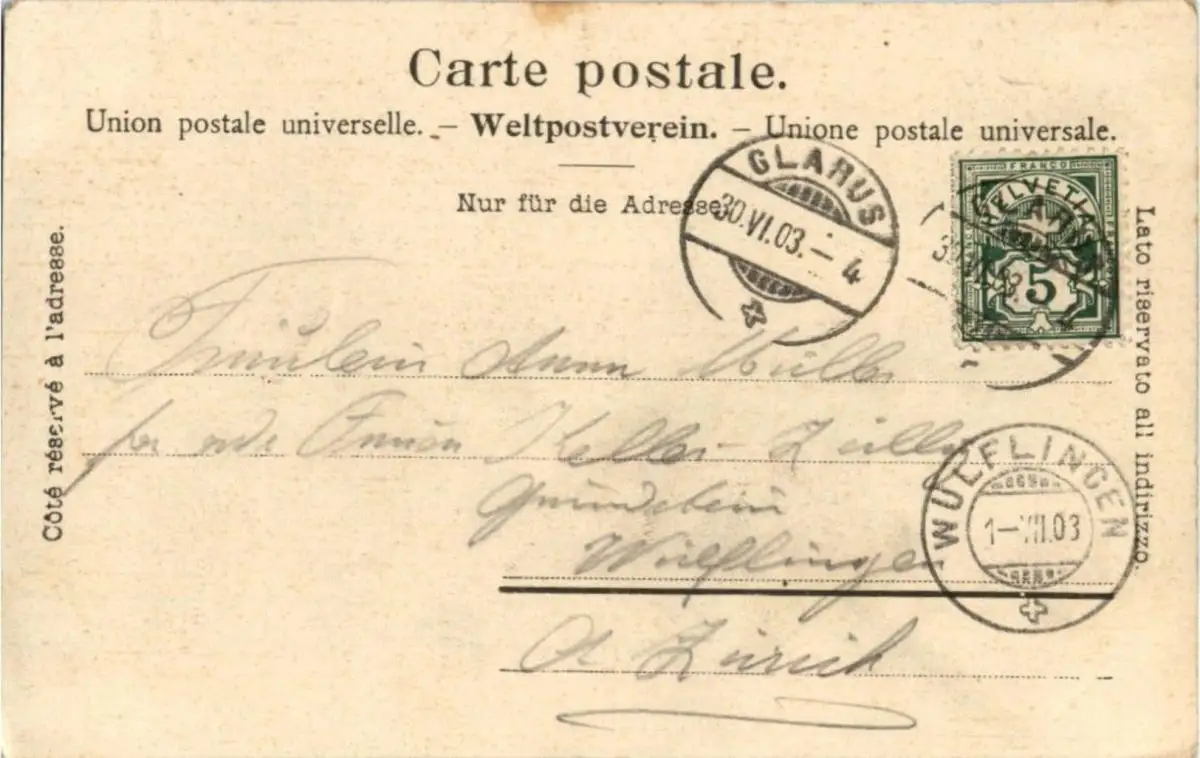 Carte postale.
Union postale universelle. – Weltpostverein. – Unione postale universale.
Nur für die Adresse
Côté réservé à l'adresse.
Lato riservato all indirizzo.
GLARUS
30.VI.03.–4
FRANCO
HELVETIA
5
Fräulein Anna Müller
Keller-Zuller
Wülflingen
Ct Zürich
WÜLFLINGEN
1–VII.03